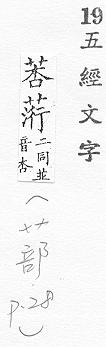 19
五經文字
莕荇二同並
音杏
(艹部 P.28)